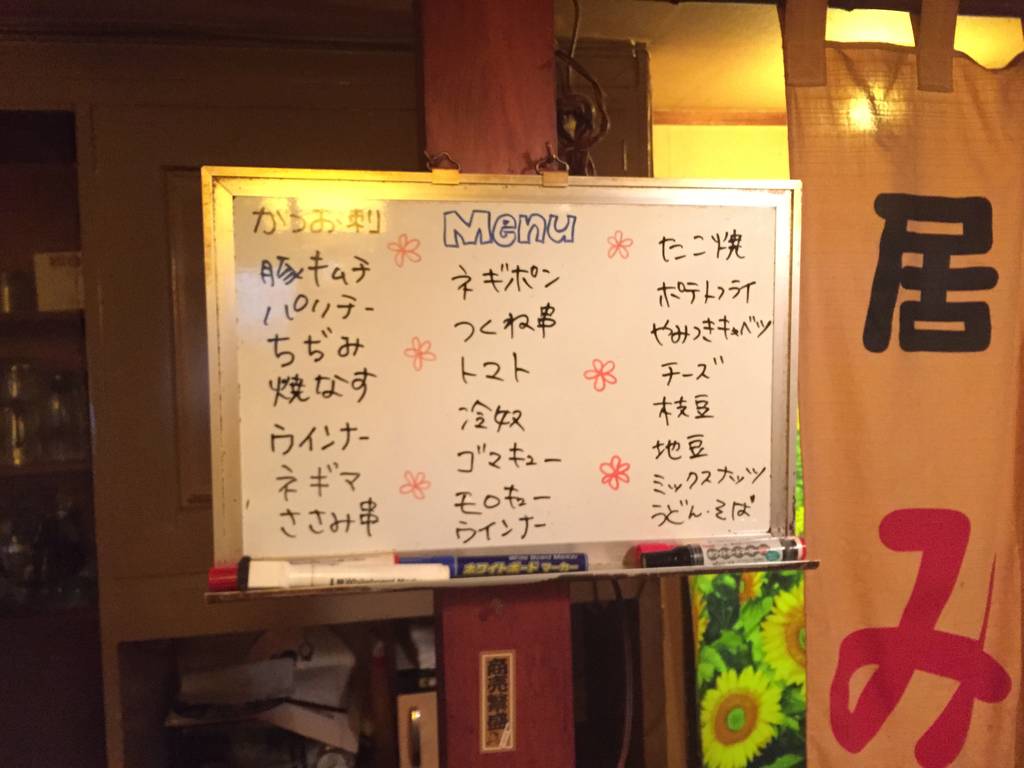 Menu
かつお刺
豚キムチ
パリチー
ちぢみ
焼なす
ウインナー
ネギマ
ささみ串
ネギポン
つくね串
トマト
冷奴
ゴマキュー
モロキュー
ウインナー
たこ焼
ポテトフライ
やみつきキャベツ
チーズ
枝豆
地豆
ミックスナッツ
うどん・そば
ホワイトボードマーカー
商売繁盛
居
み